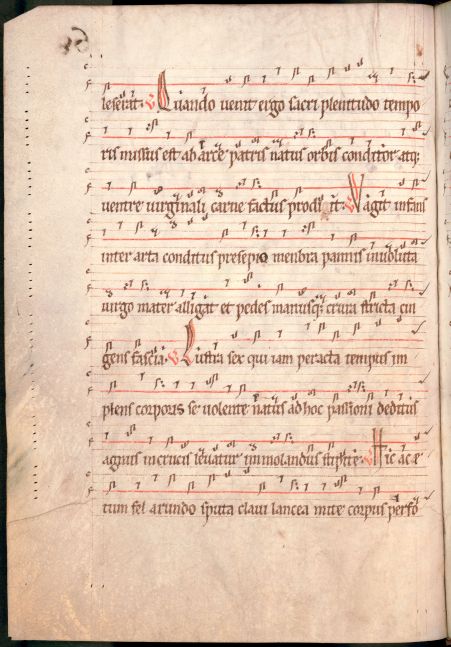 leserat. V Quando venit ergo sacri plenitudo tempo
ris missus est ab arce patris natus orbis conditor atq;
ventre virginali carne factus prodi it. V Vagit infans
inter arta conditus presepio menbra pannis involuta
virgo mater alligat et pedes manusq; crura stricta cin
gens fascia. V Lustra sex qui iam peracta tempus im
plens corporis se volente natus ad hoc passioni deditus
agnus in crucis levatur immolandus stipite. Hic acæ
tum fel arundo sputa clavi lancea mite corpus perfo